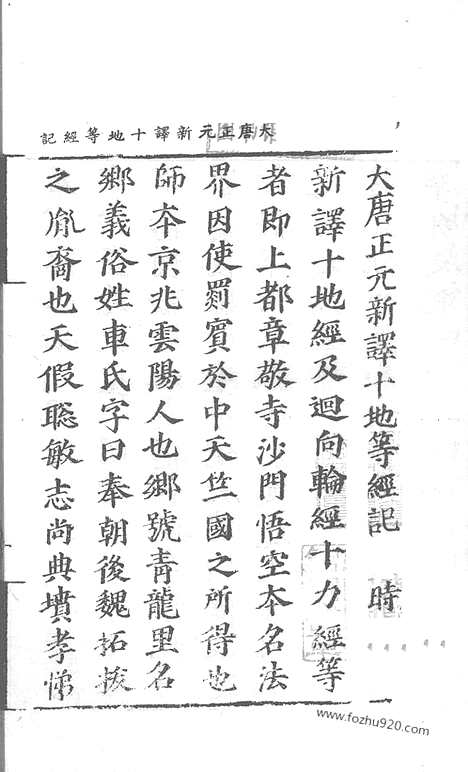 大唐正元新譯十地等經記
大唐正元新譯十地等經記　時
新譯十地經及迴向輪經十力經等
者即上都章敬寺沙門悟空本名法
界因使罽賓於中天竺國之所得也
師本京兆雲陽人也鄉號青龍里名
鄉義俗姓車氏字曰奉朝後魏拓拔
之胤裔也天假聡敏志尚典墳孝悌
www.fozhu920.com